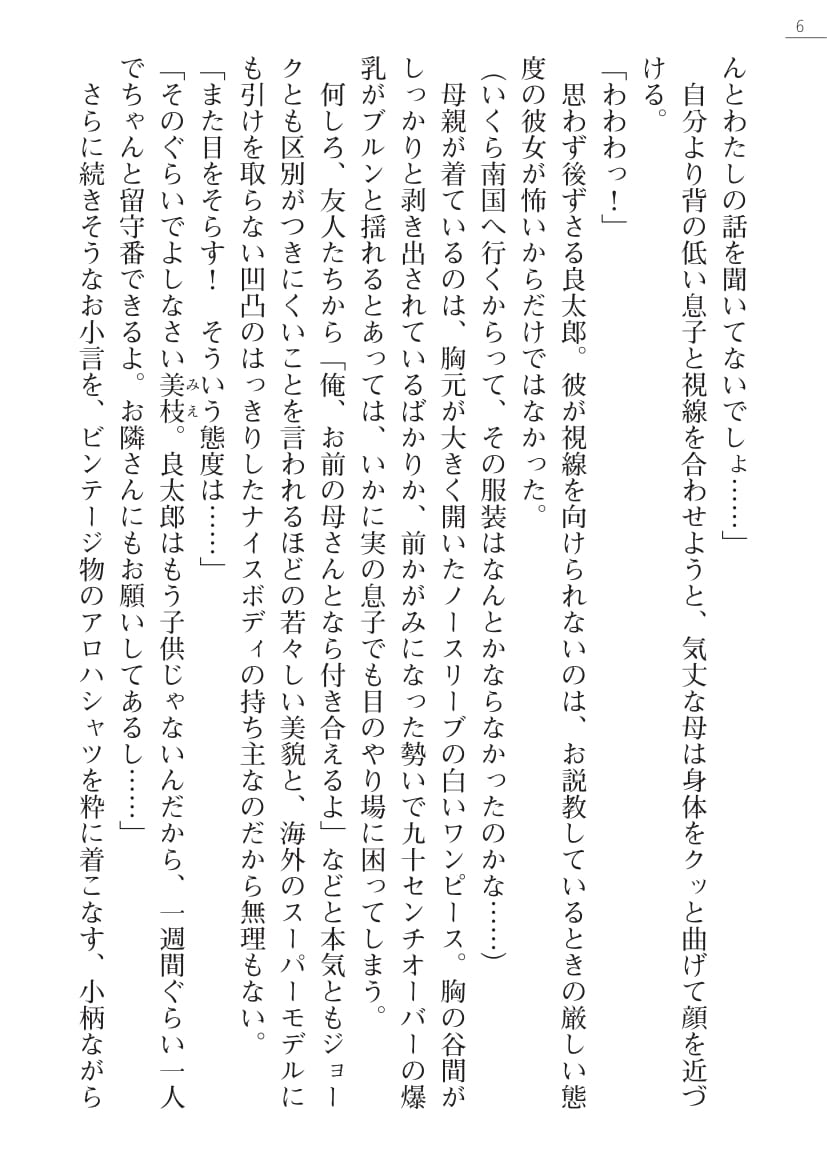 6
んとわたしの話を聞いてないでしょ……」
自分より背の低い息子と視線を合わせようと、気丈な母は身体をクッと曲げて顔を近づ
ける。
「わわわっ！」
思わず後ずさる良太郎。彼が視線を向けられないのは、お説教しているときの厳しい態
度の彼女が怖いからだけではなかった。
（いくら南国へ行くからって、その服装はなんとかならなかったのかな……）
母親が着ているのは、胸元が大きく開いたノースリーブの白いワンピース。胸の谷間が
しっかりと剥き出されているばかりか、前かがみになった勢いで九十センチオーバーの爆
乳がブルンと揺れるとあっては、いかに実の息子でも目のやり場に困ってしまう。
何しろ、友人たちから「俺、お前の母さんとなら付き合えるよ」などと本気ともジョー
クとも区別がつきにくいことを言われるほどの若々しい美貌と、海外のスーパーモデルに
も引けを取らない凹凸のはっきりしたナイスボディの持ち主なのだから無理もない。
「また目をそらす！　そういう態度は……」
「そのぐらいでよしなさい美枝みえ。良太郎はもう子供じゃないんだから、一週間ぐらい一人
でちゃんと留守番できるよ。お隣さんにもお願いしてあるし……」
さらに続きそうなお小言を、ビンテージ物のアロハシャツを粋に着こなす、小柄ながら